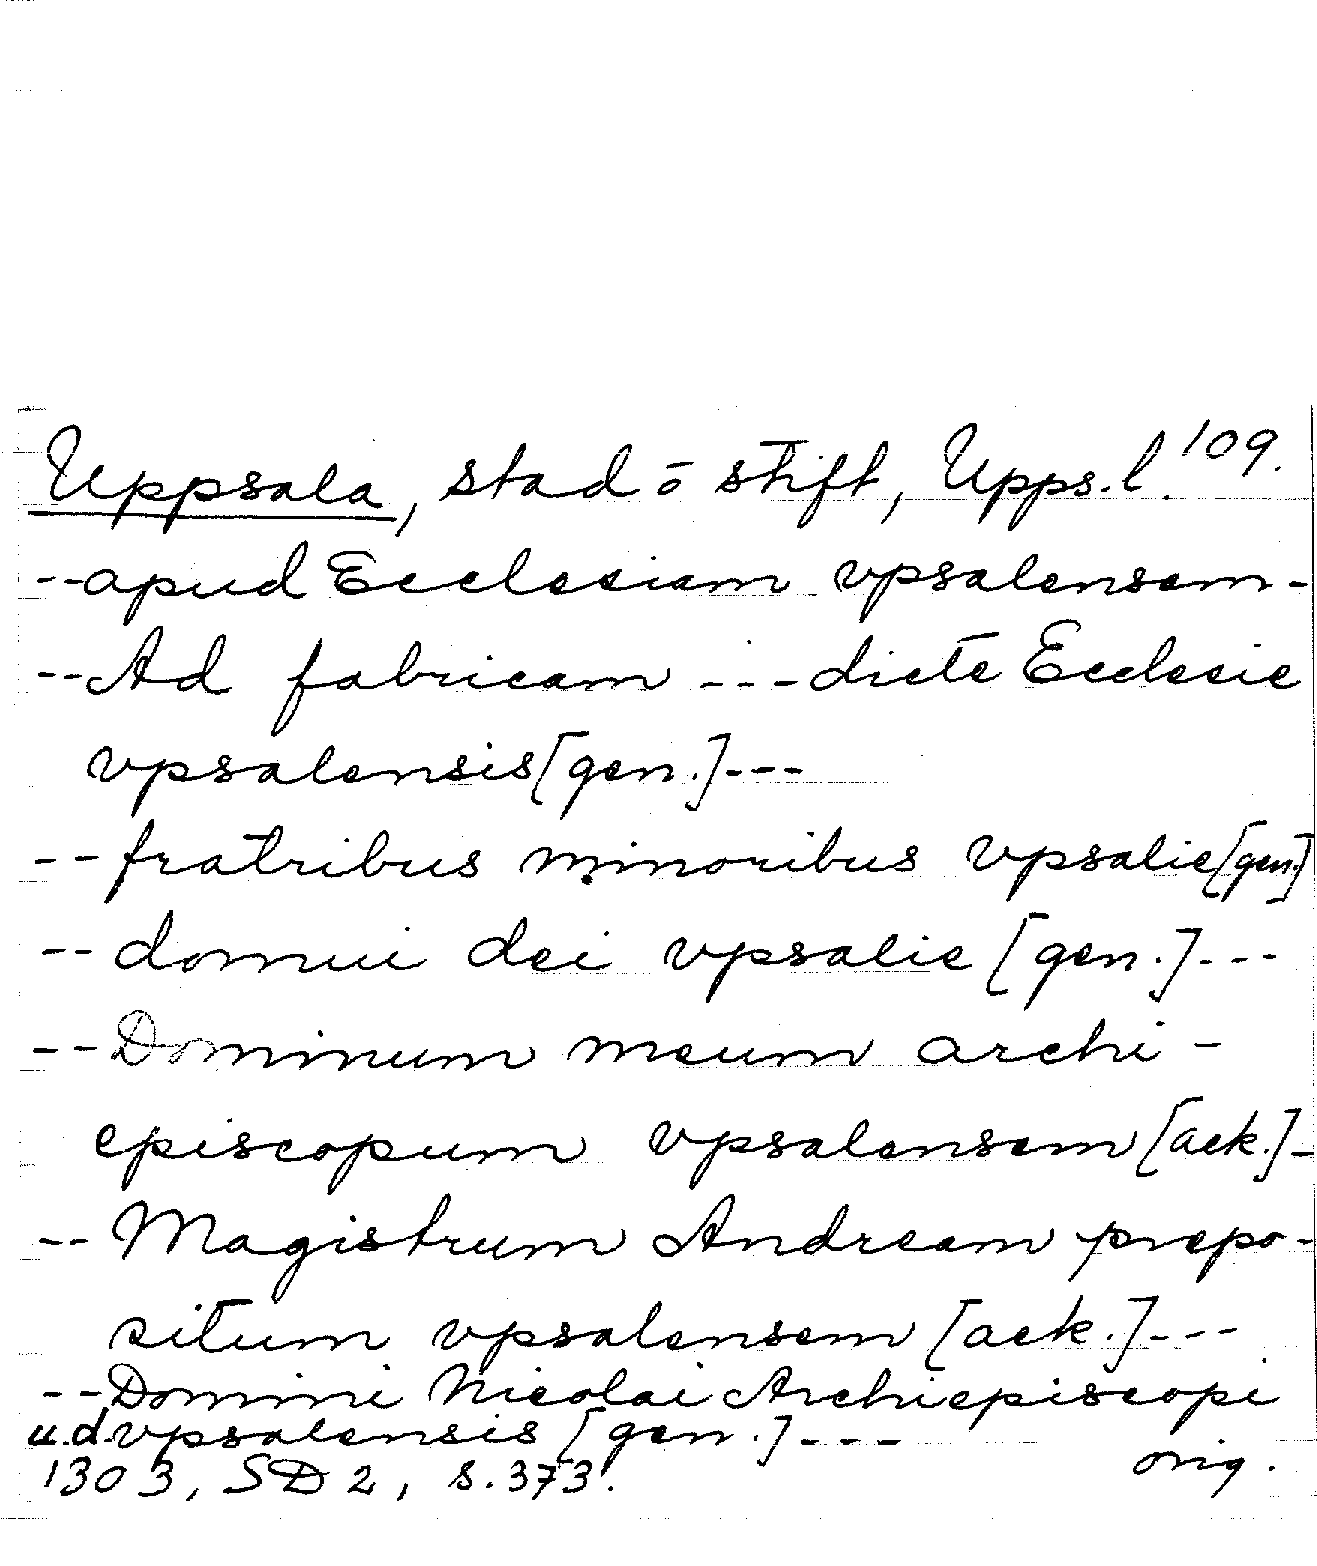 Uppsala, stad o stift, Upps.l. 109.
--apud Ecclesiam vpsalensem-
--Ad fabricam ---dicte Ecclesie
vpsalensis[gen.]---
--fratribus minoribus vpsalie[gen.]
--domui dei vpsalie [gen.]---
--Dominum meum archi-
episcopum vpsalensem[ack.]-
--Magistrum Andream prepo-
situm vpsalensem [ack.]---
--Domini Nicolai Archiepiscopi
u.d. vpsalensis [gen.]---
1303, SD 2, s.373. orig.